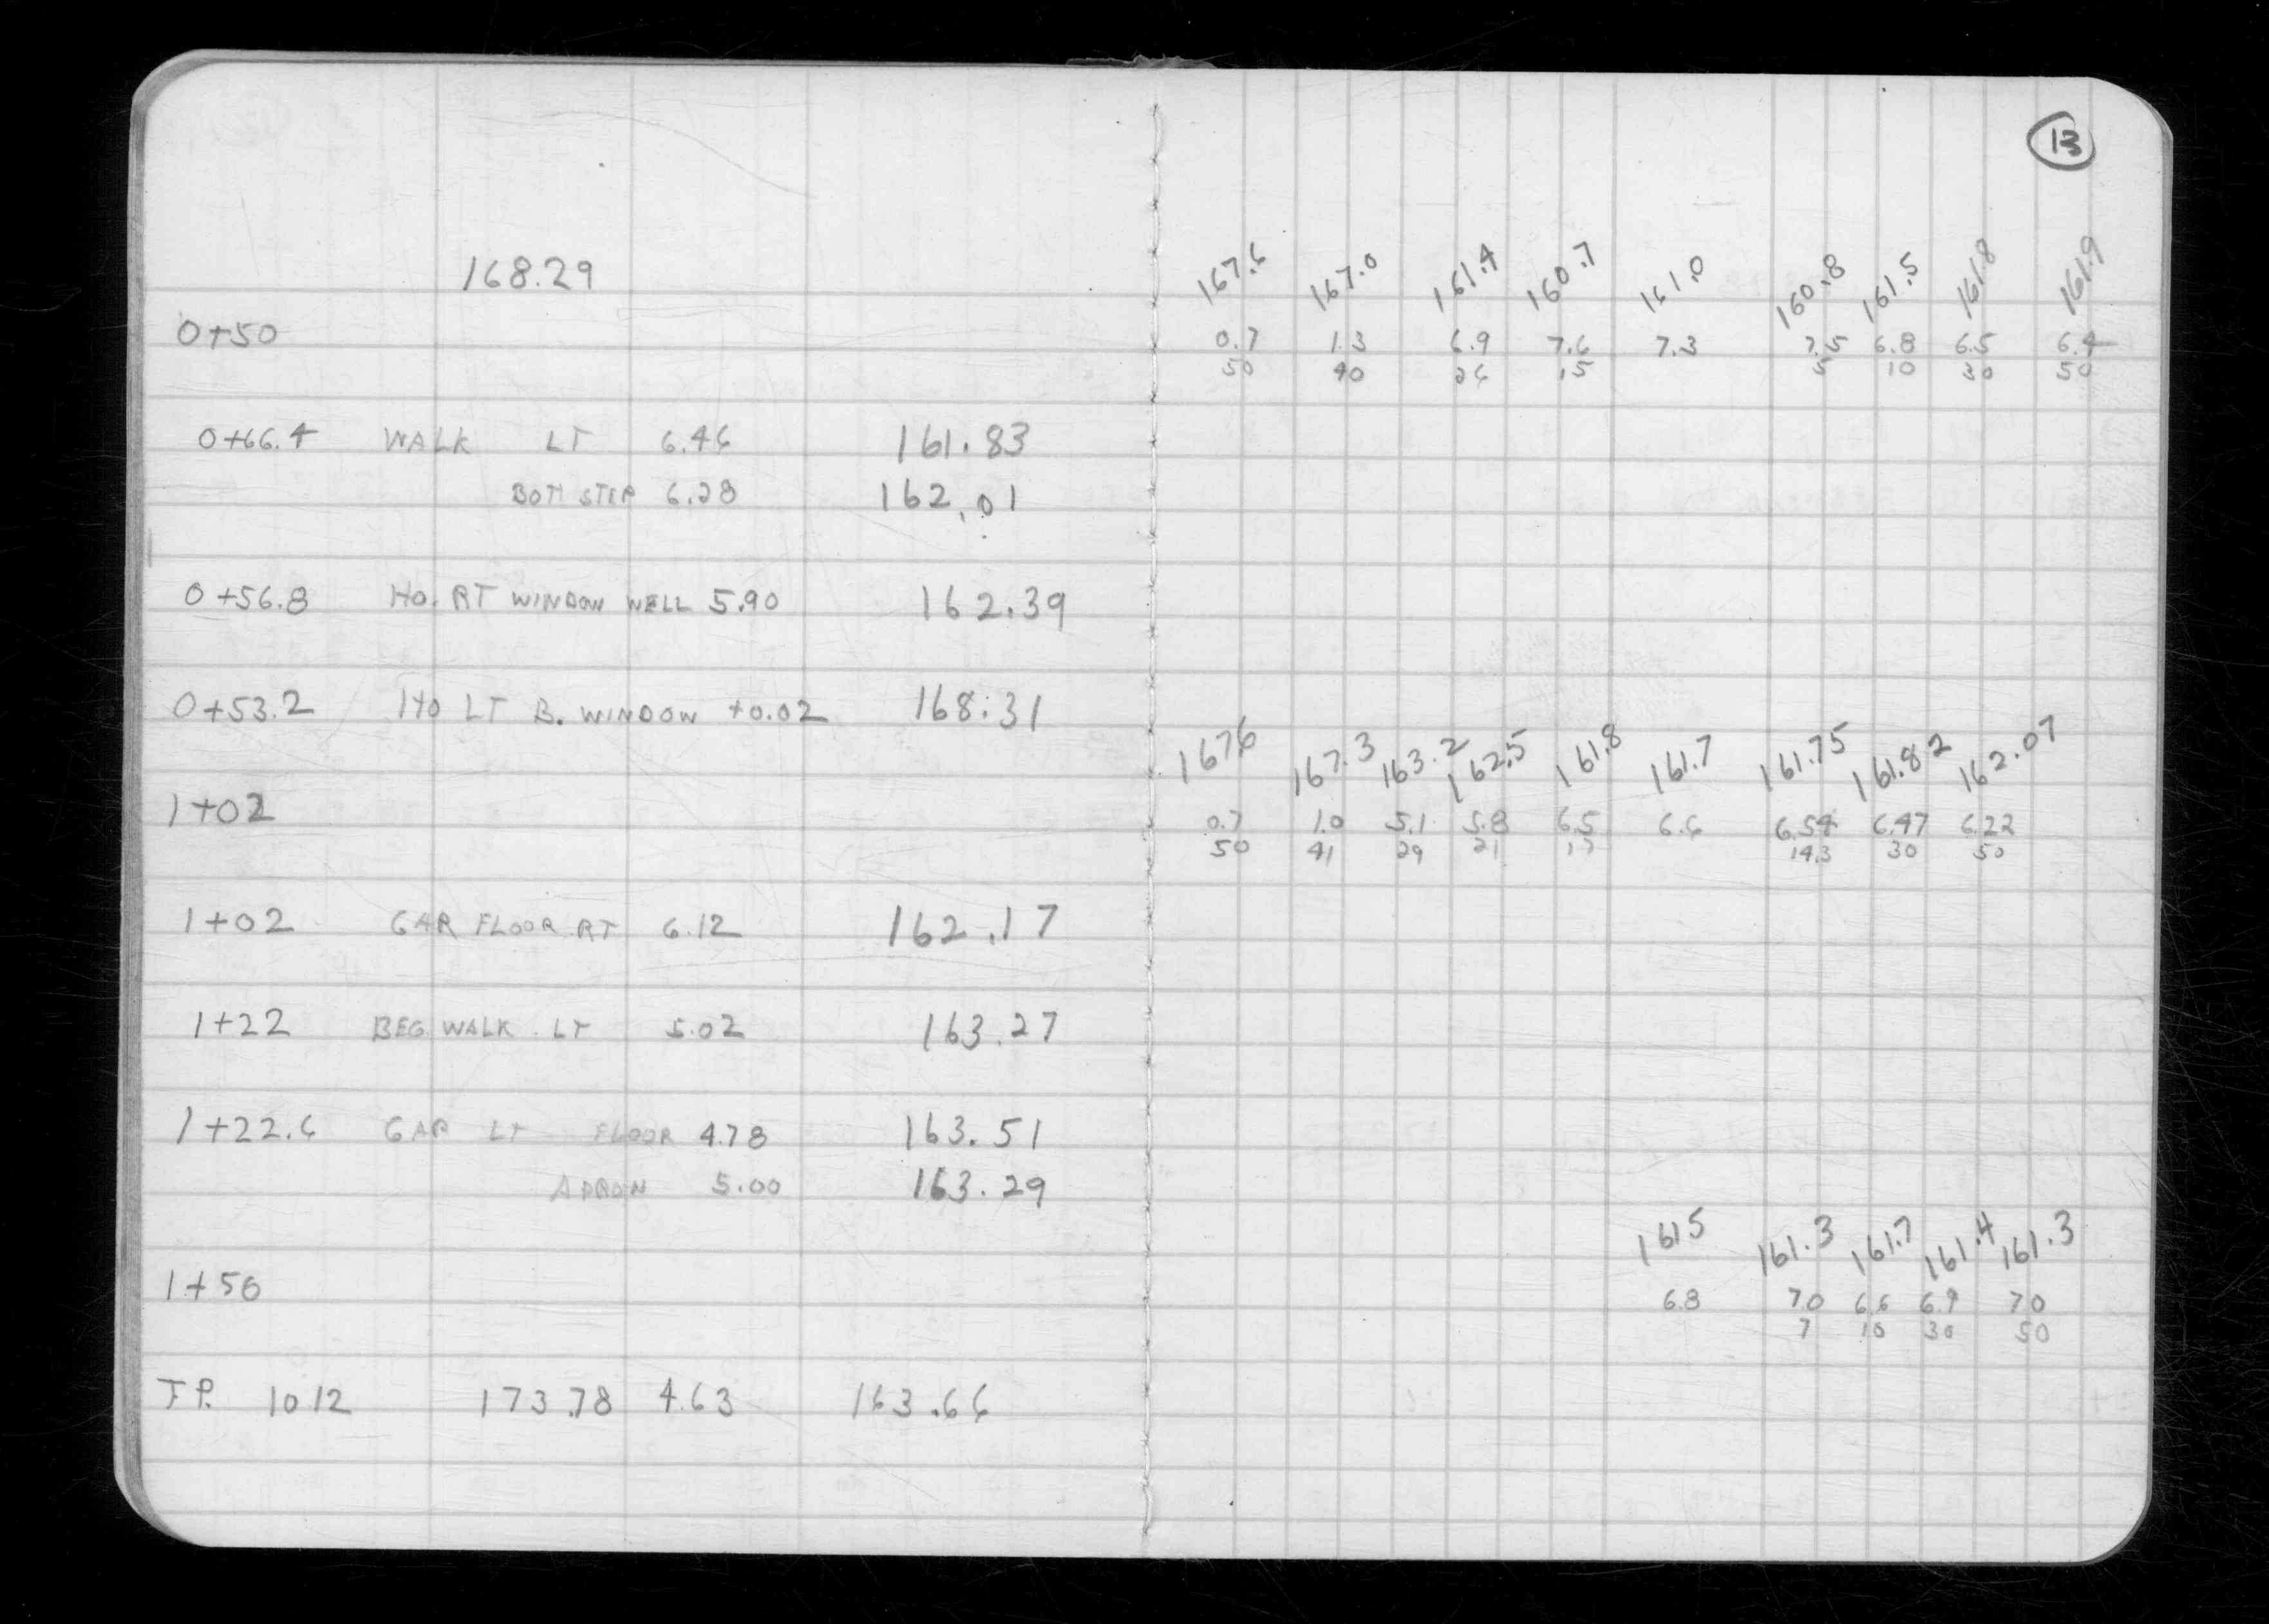 13
168.29
167.6 167.0 161.4 160.7 161.0 160.8 161.5 161.8 161.9
0+50 0.7 1.3 6.9 7.6 7.3 7.5 6.8 6.5 6.4
50 40 26 15 5 10 30 50
0+66.4 WALK LT 6.46 161.83
BOTT STEP 6.28 162.01
0+56.8 HO. RT WINDOW WELL 5.90 162.39
0+53.2 HO LT B. WINDOW +0.02 168.31
1676 167.3 163.2 162.5 161.8 161.7 161.75 161.82 162.07
1+02 0.7 1.0 5.1 5.8 6.5 6.6 6.54 6.47 6.22
50 41 29 21 14.3 30 50
1+02 GAR FLOOR RT 6.12 162.17
1+22 BEG WALK LT 5.02 163.27
1+22.6 GAR LT FLOOR 4.78 163.51
APRON 5.00 163.29
1615 161.3 161.7 161.4 161.3
1+50 6.8 7.0 6.6 6.9 70
7 10 30 50
T.P. 10 12 173.78 4.63 163.66